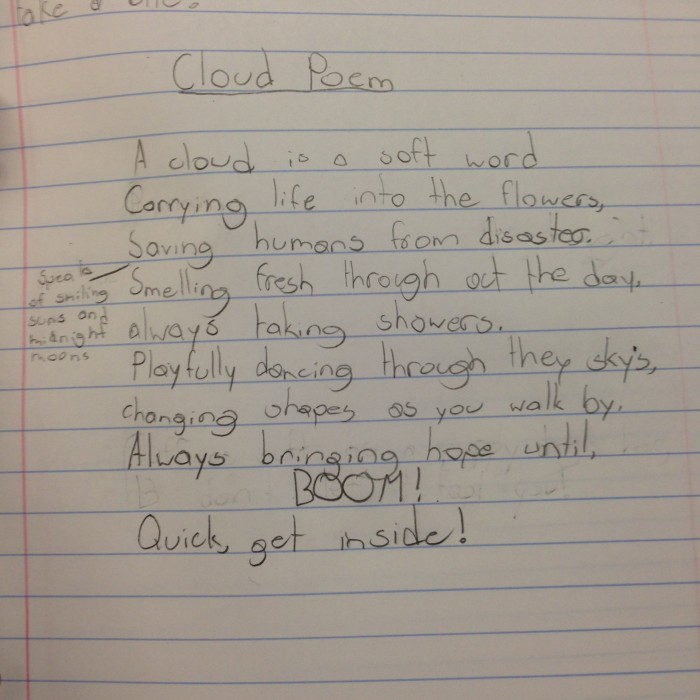 take a one.
Cloud Poem
A cloud is a soft word
Carrying life into the flowers,
Saving humans from disaster.
Speaks
of smiling
suns and
midnight
moons
Smelling fresh through out the day,
always taking showers.
Playfully dancing through they sky's,
changing shapes as you walk by.
Always bringing hope until,
BOOM!
Quick, get inside!